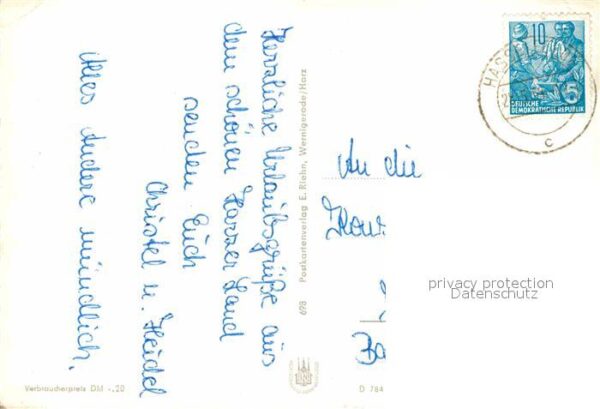 Herzliche Urlaubsgrüße aus
dem schönen Harzer Land
senden Euch
Christel u. Heidel
Alles Andere mündlich.
698 Postkartenverlag E. Riehn, Wernigerode/Harz
An die
10
5
DEUTSCHE
DEMOKRATISCHE REPUBLIK
c
privacy protection
Datenschutz
Verbraucherpreis DM -,20
D 784